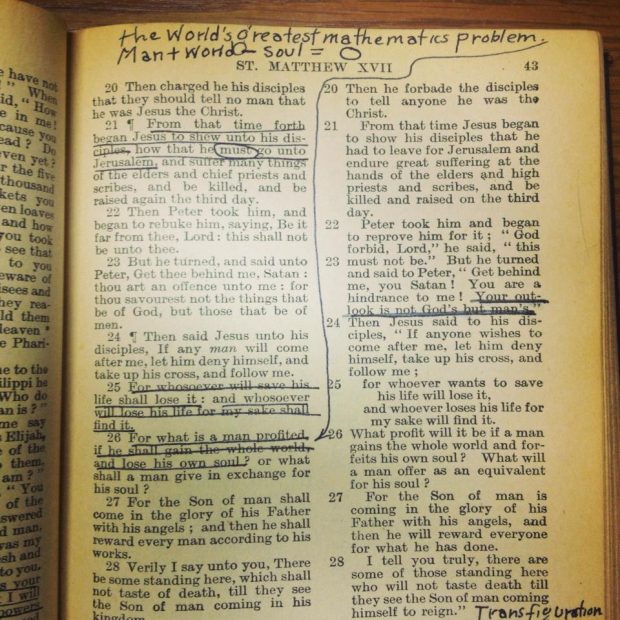 the World's greatest mathematics problem.
Man + World - Soul = 0
ST. MATTHEW XVII
43
e have not
" When
id, " How
e in me!
cause you
ead? Do
even yet?
r the five
thousand
kets you
en loaves
and how
you took
see that
to you
eware of
isees and
they rea-
ld them
leaven
e Phari-
me to the
ilippi he
Who do
an is?"
me say
Elijah,
e of the
them,
am?"
" You
of the
swered
d man,
was my
esh and
to you.
s your
I will
powers
20 Then charged he his disciples
that they should tell no man that
he was Jesus the Christ.
21 ¶ From that time forth
began Jesus to shew unto his dis-
ciples, how that he must go unto
Jerusalem, and suffer many things
of the elders and chief priests and
scribes, and be killed, and be
raised again the third day.
22 Then Peter took him, and
began to rebuke him, saying, Be it
far from thee, Lord: this shall not
be unto thee.
23 But he turned, and said unto
Peter, Get thee behind me, Satan:
thou art an offence unto me: for
thou savourest not the things that
be of God, but those that be of
men.
24 ¶ Then said Jesus unto his
disciples, If any man will come
after me, let him deny himself, and
take up his cross, and follow me.
25 For whosoever will save his
life shall lose it: and whosoever
will lose his life for my sake shall
find it.
26 For what is a man profited,
if he shall gain the whole world,
and lose his own soul? or what
shall a man give in exchange for
his soul?
27 For the Son of man shall
come in the glory of his Father
with his angels; and then he shall
reward every man according to his
works.
28 Verily I say unto you, There
be some standing here, which shall
not taste of death, till they see
the Son of man coming in his
kingdom.
20 Then he forbade the disciples
to tell anyone he was the
Christ.
21 From that time Jesus began
to show his disciples that he
had to leave for Jerusalem and
endure great suffering at the
hands of the elders and high
priests and scribes, and be
killed and raised on the third
day.
22 Peter took him and began
to reprove him for it; " God
forbid, Lord," he said, " this
23 must not be." But he turned
and said to Peter, " Get behind
me, you Satan! You are a
hindrance to me! Your out-
look is not God's but man's."
24 Then Jesus said to his dis-
ciples, " If anyone wishes to
come after me, let him deny
himself, take up his cross, and
follow me;
25 for whoever wants to save
his life will lose it,
and whoever loses his life for
my sake will find it.
26 What profit will it be if a man
gains the whole world and for-
feits his own soul? What will
a man offer as an equivalent
for his soul?
27 For the Son of man is
coming in the glory of his
Father with his angels, and
then he will reward everyone
for what he has done.
28 I tell you truly, there are
some of those standing here
who will not taste death till
they see the Son of man coming
himself to reign."
Transfiguration